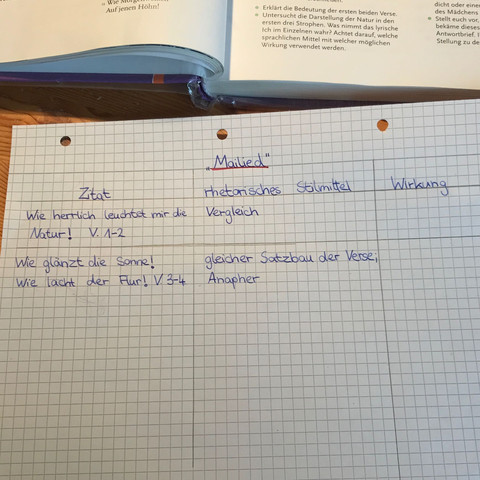 » Wie Morgen
Auf jenen Höhn!
Erklärt die Bedeutung der ersten beiden Verse.
Untersucht die Darstellung der Natur in den
ersten drei Strophen. Was nimmt das lyrische
Ich im Einzelnen wahr? Achtet darauf, welche
sprachlichen Mittel mit welcher möglichen
Wirkung verwendet werden.
dicht oder eine
des Mädchens
Stellt euch vor,
bekäme dieses
Antwortbrief. I
Stellung zu de
„Mailied"
Zitat rhetorisches Stilmittel Wirkung
Wie herrlich leuchtet mir die Vergleich
Natur! V. 1-2
Wie glänzt die Sonne! gleicher Satzbau der Verse,
Wie lacht der Flur! V 3-4 Anapher